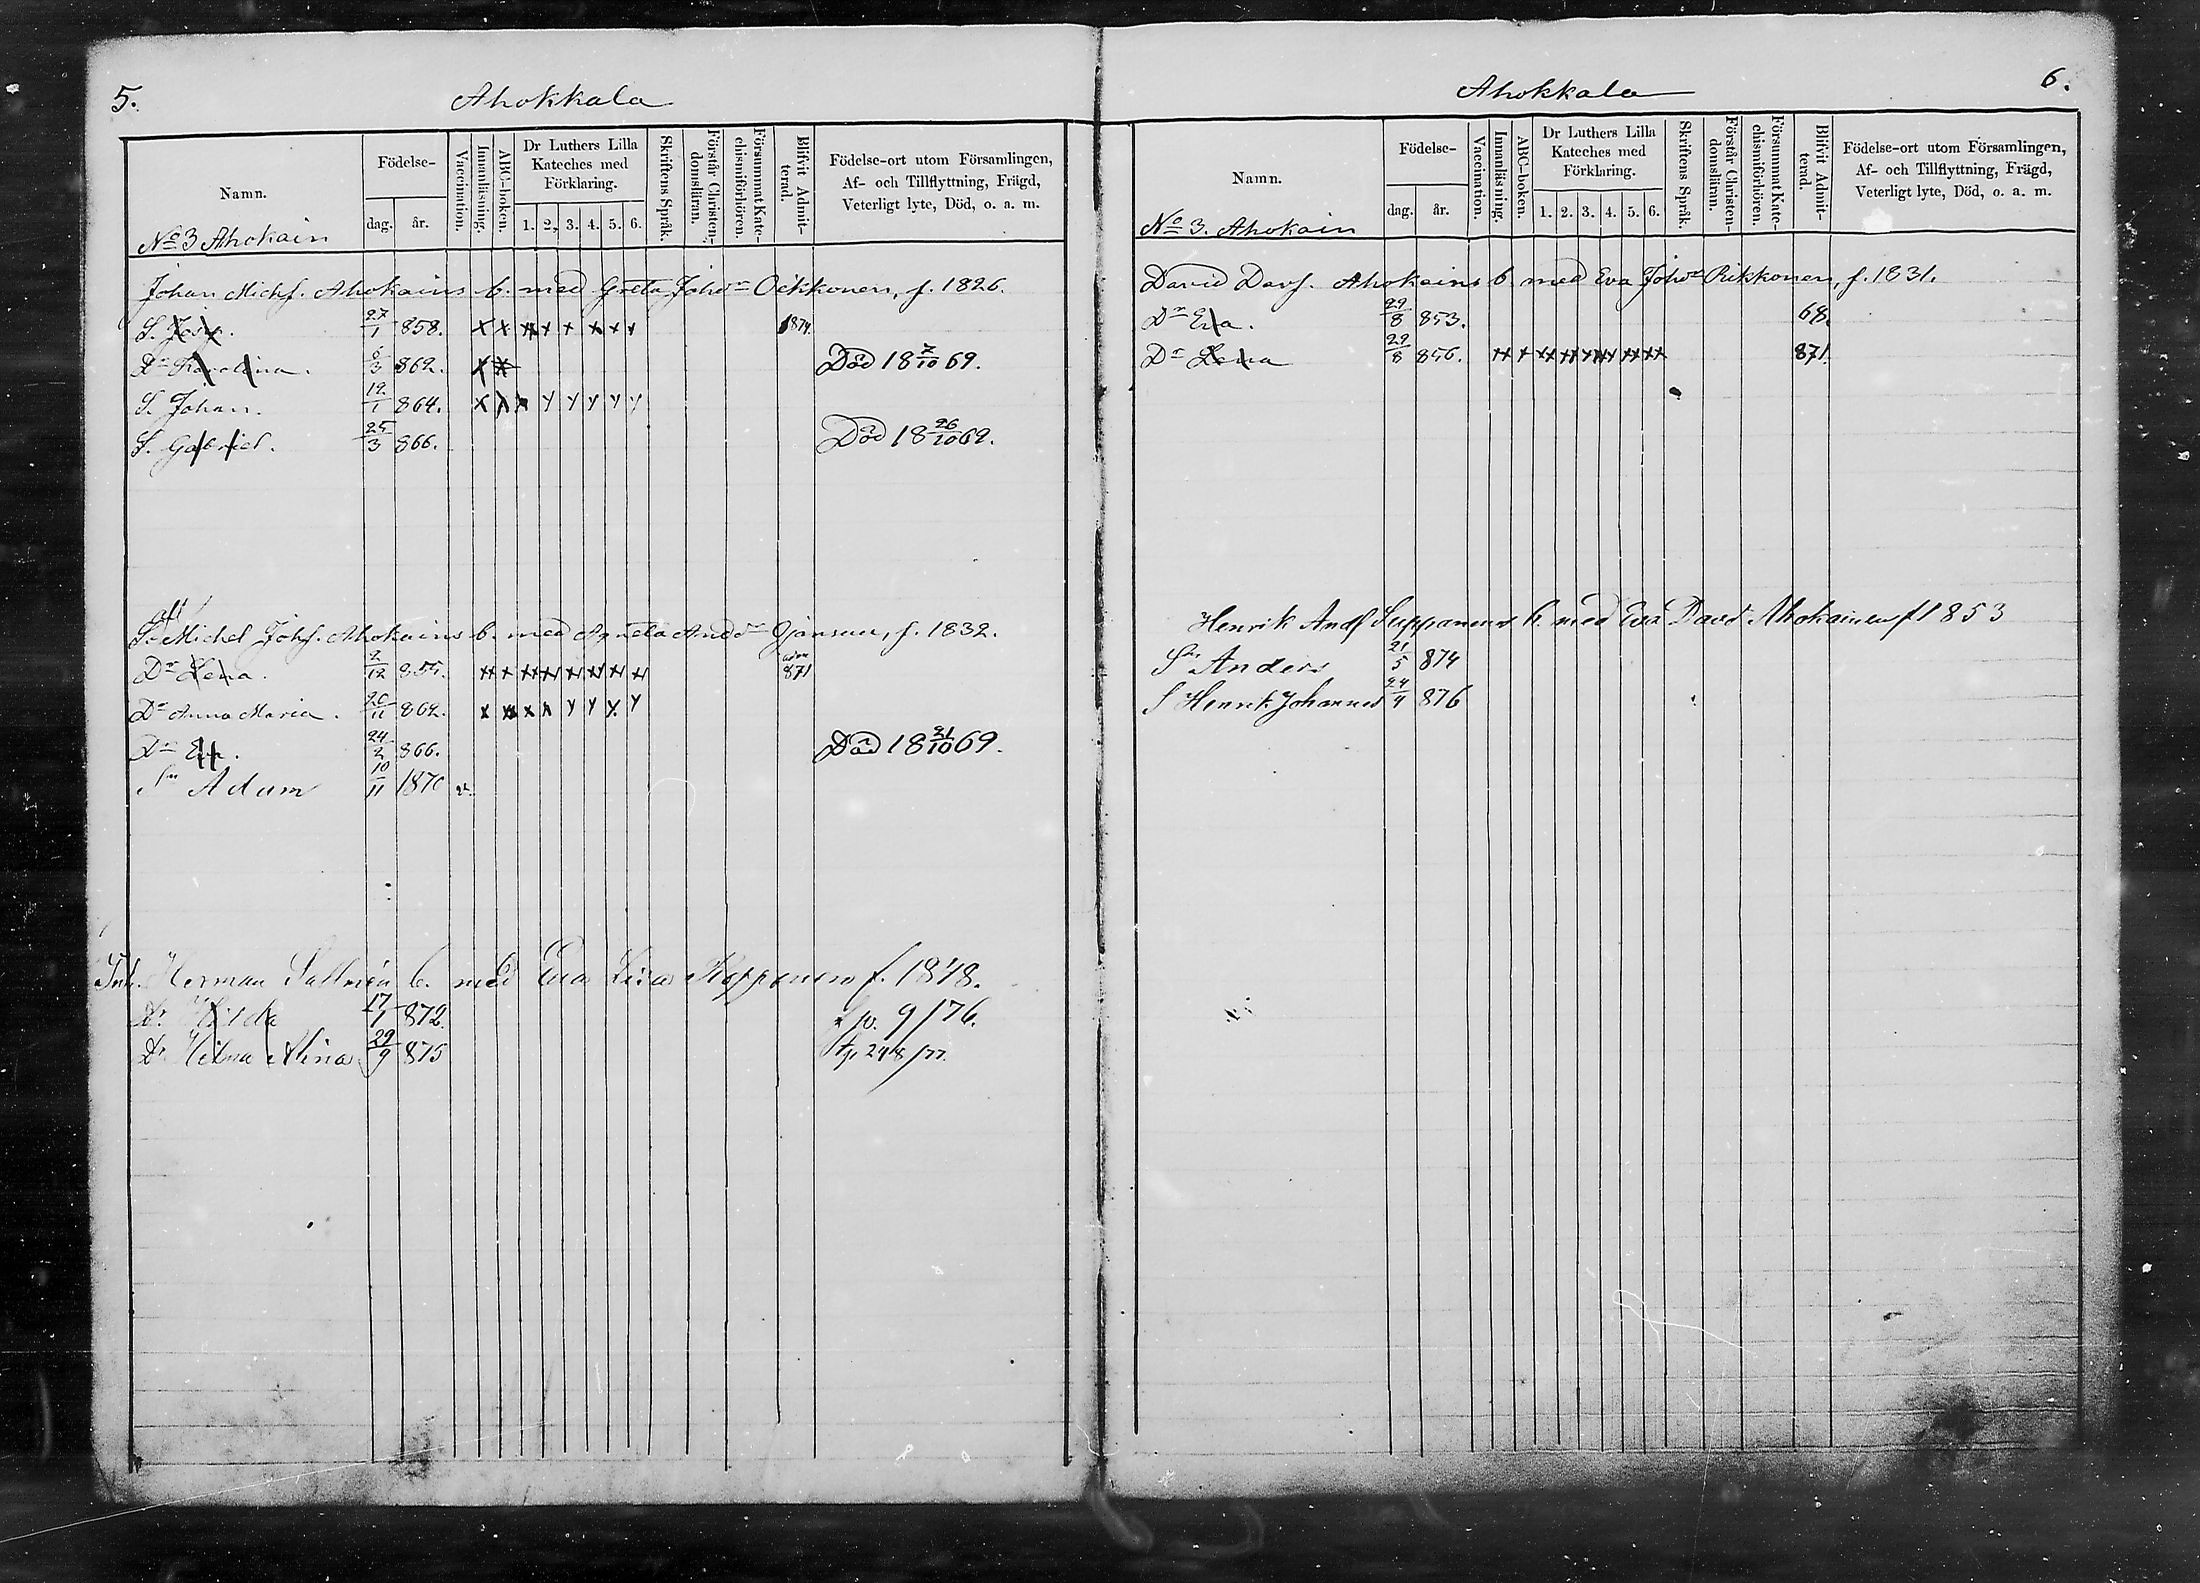 5.
Ahokkala
Namn.
Födelse-
dag.
år.
Vaccination.
Innanläsning.
ABC-boken.
Dr Luthers Lilla
Kateches med
Förklaring.
1. 2. 3. 4. 5. 6.
Skriftens Språk.
Förstår Christen-
domsläran.
Försummat Kate-
chismiförhören.
Blifvit Admit-
terad.
Födelse-ort utom Församlingen,
Af- och Tillflyttning, Frägd,
Veterligt lyte, Död, o. a. m.
No 3 Ahokain
Johan Michs. Ahokains b. med Greta Johdr Oikkonen, f. 1826.
S. 27/1 858. x x x x x x x x 1874.
Dr Karolina. 6/3 862. x x Död 18 7/10 69.
S. Johan. 19/1 864. x x x y y y y y
S. Gabriel. 25/3 866. Död 18 26/10 69.
S. Michel Johs. Ahokains b. med Agneta Anddr f. 1832.
Dr Lena. 2/12 855. x x x x x x x x adm 871
Dr Anna Maria. 20/11 862. x x x x y y y y
Dr Eva. 24/2 866. Död 18 21/10 69.
Sn Adam 10/11 1870 v.
Inh. Herman b. med Eva Lisa Kopponen f. 1848.
Dr Hilda 17/1 872. 9/76.
Dr Hilma Alina 29/9 875 24/8/77.
6.
Ahokkala
Namn.
Födelse-
dag.
år.
Vaccination.
Innanläsning.
ABC-boken.
Dr Luthers Lilla
Kateches med
Förklaring.
1. 2. 3. 4. 5. 6.
Skriftens Språk.
Förstår Christen-
domsläran.
Försummat Kate-
chismiförhören.
Blifvit Admit-
terad.
Födelse-ort utom Församlingen,
Af- och Tillflyttning, Frägd,
Veterligt lyte, Död, o. a. m.
No 3. Ahokain
David Davs. Ahokains b. med Eva Johdr Rikkonen, f. 1831.
Dr Eva. 29/8 853. 68.
Dr Lena 29/8 856. x x x x x x x x 871.
Henrik Ands Suppanens b. med Eva Davd Ahokainen f 1853
Sn Anders 21/5 874
S Henrik Johannes 24/4 876